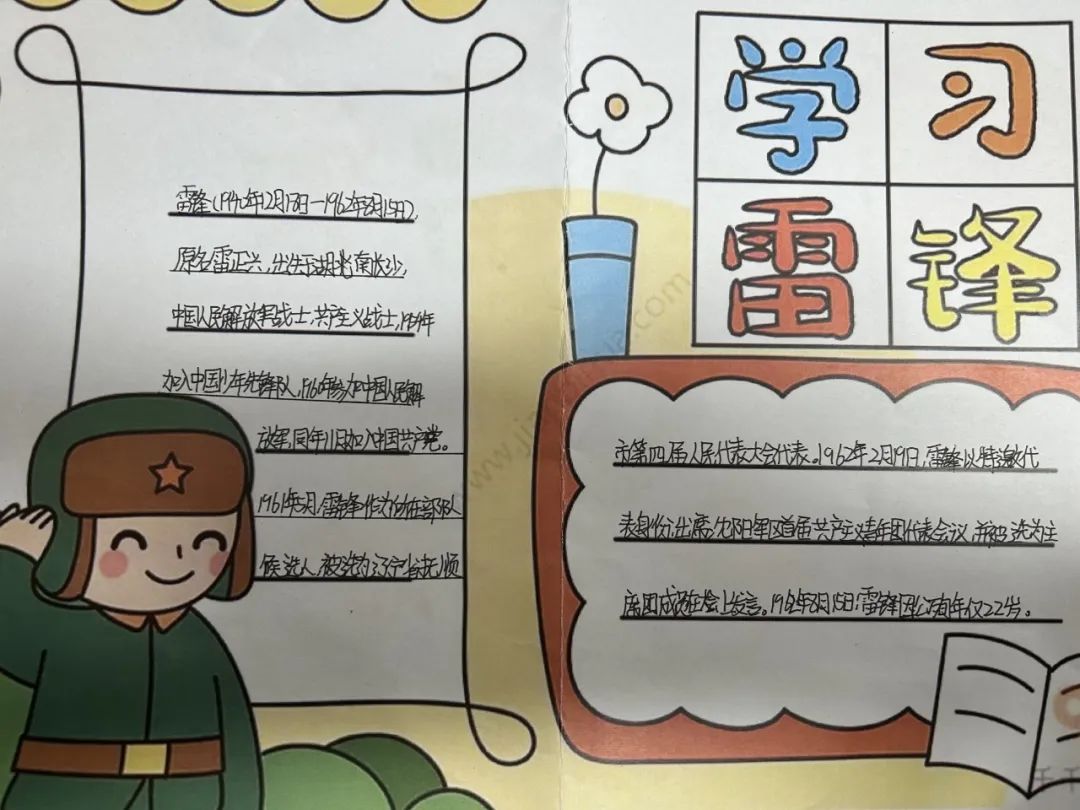 学习
雷锋
雷锋(1940年12月18日—1962年8月15日),
原名雷正兴,出生于湖南长沙,
中国人民解放军战士,共产主义战士,1954年
加入中国少年先锋队,1960年参加中国人民解
放军,同年11月加入中国共产党。
1961年5月,雷锋作为所在部队
候选人,被选为辽宁省抚顺
市第四届人民代表大会代表。1962年2月19日,雷锋以特邀代
表身份,出席沈阳军区首届共产主义青年团代表会议,并被选为主
席团成员在会上发言。1962年8月15日,雷锋因公殉年仅22岁。